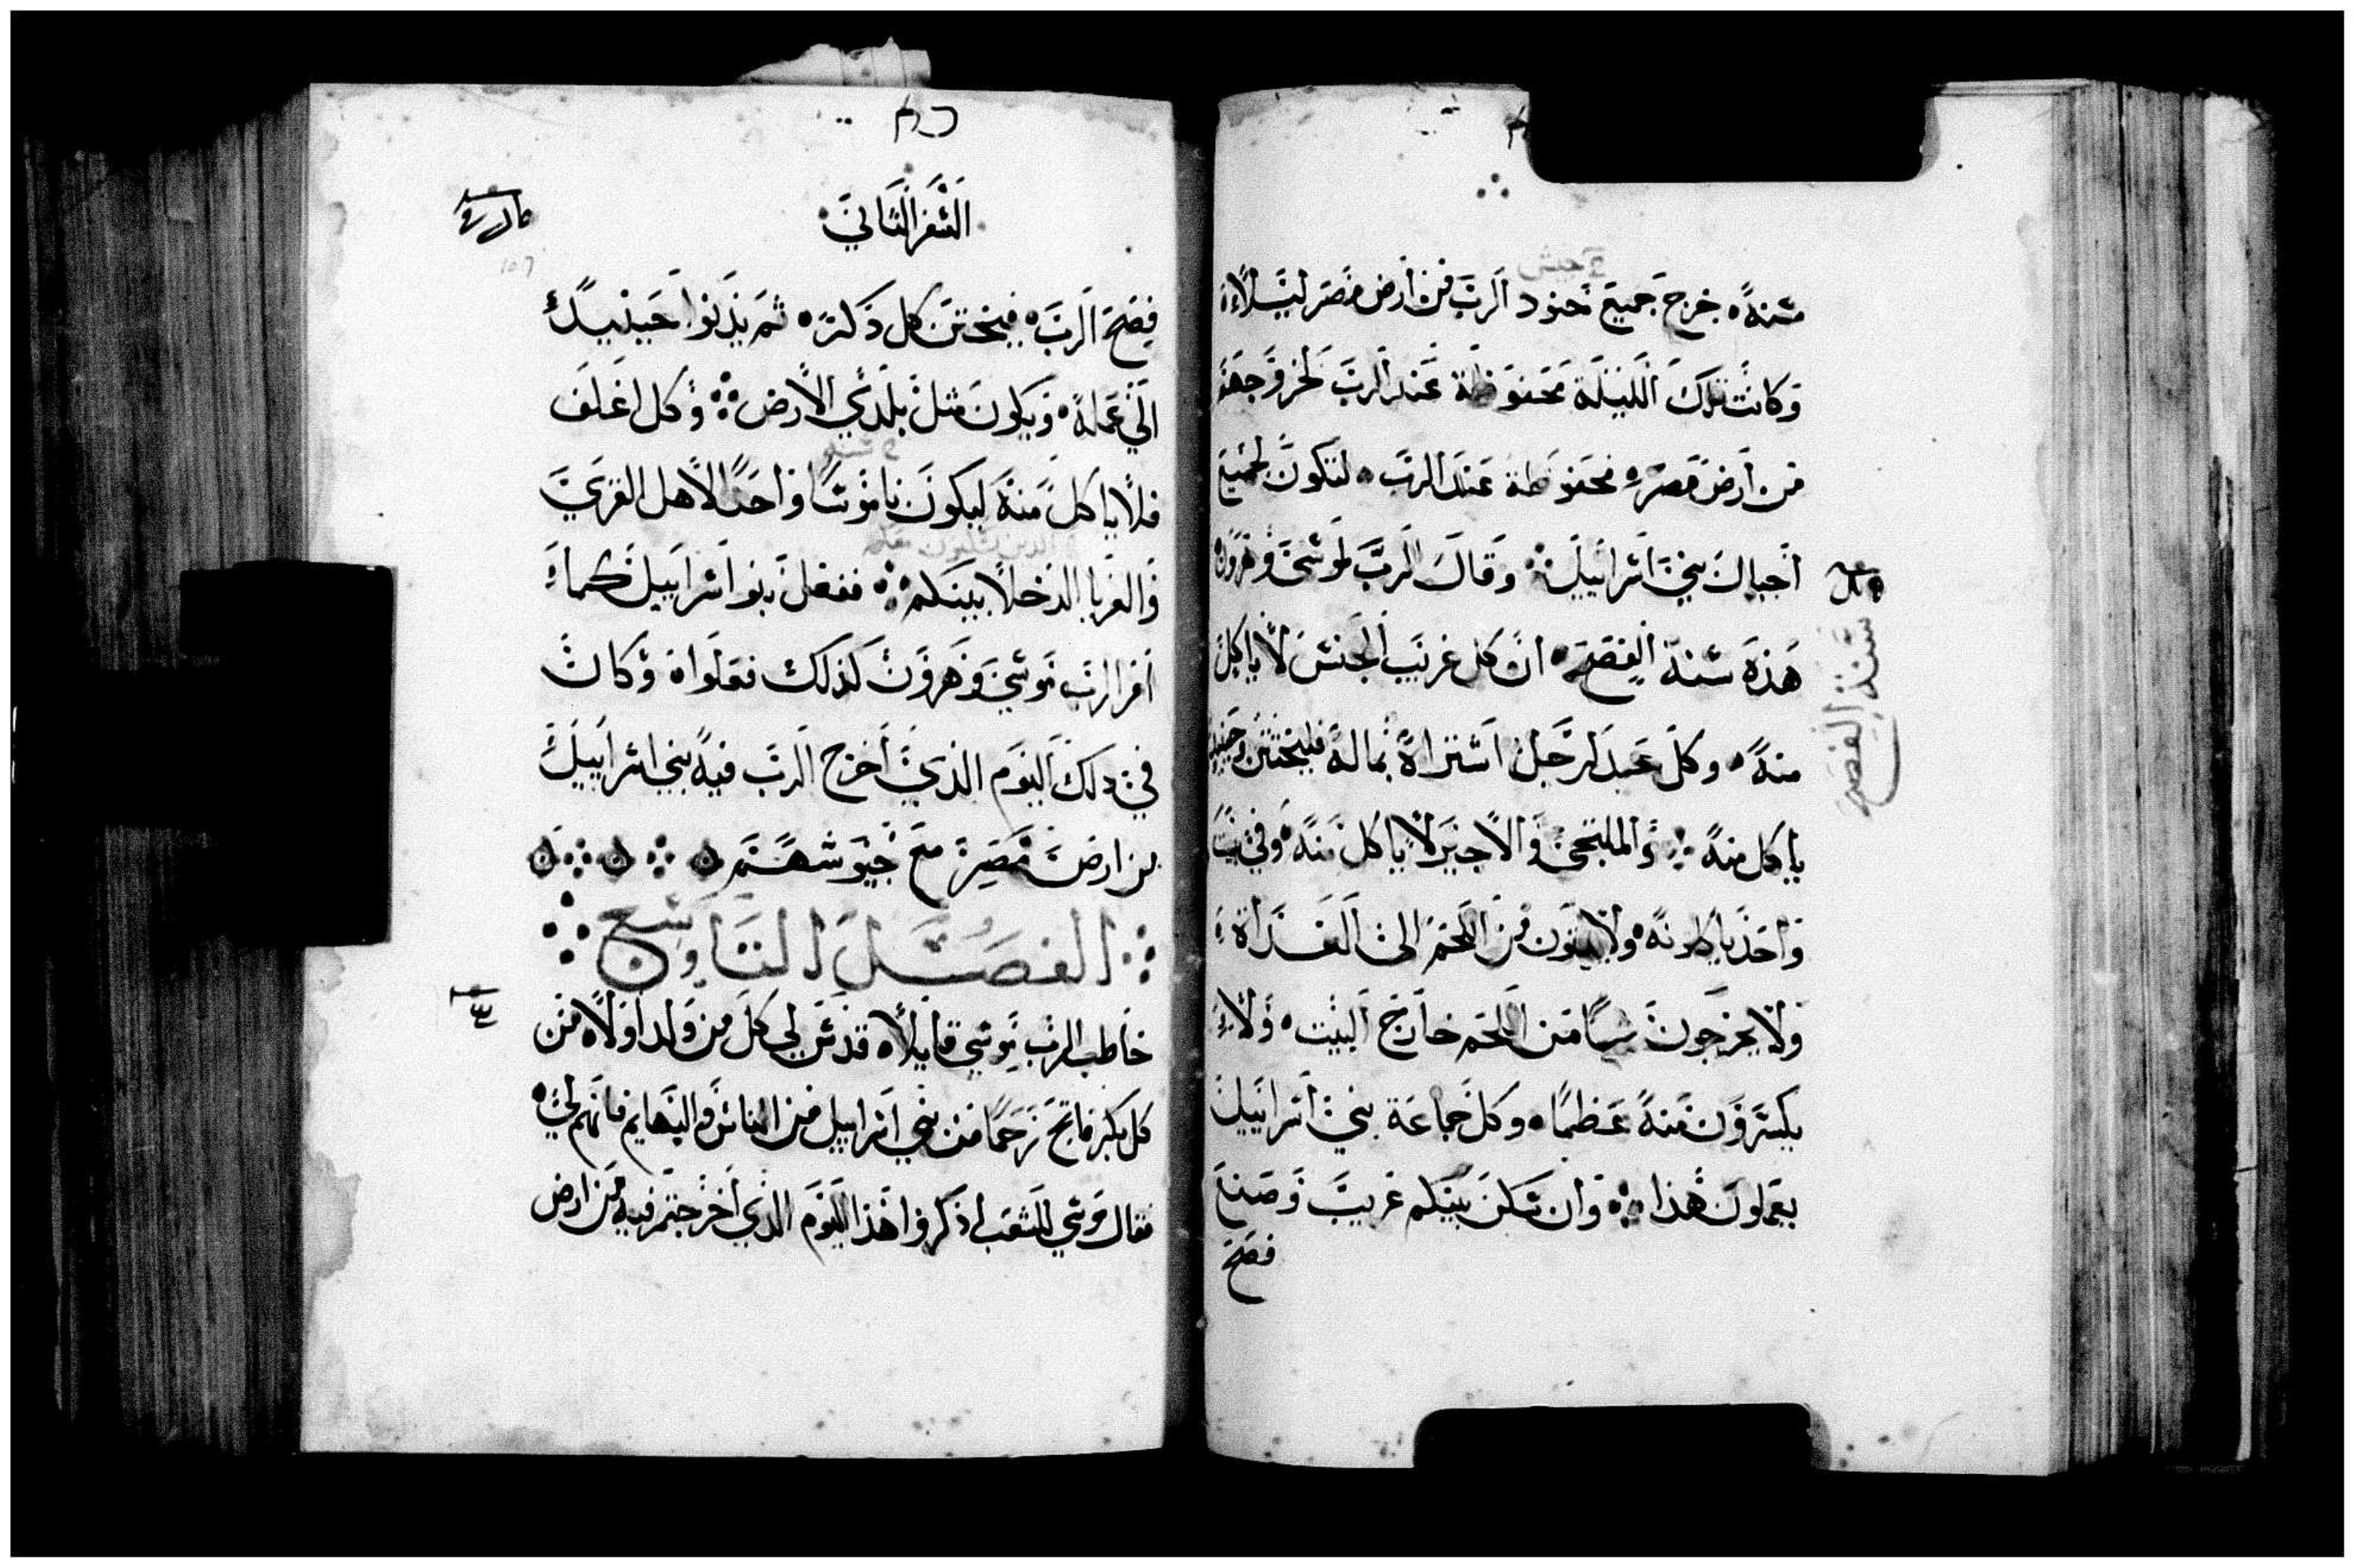 سنة خرج جميع جنود الرب من أرض مصر ليلا
وكانت تلك الليلة محفوظة عند الرب لخروجهم
من أرض مصر محفوظة عند الرب لتكون لجميع
أجيال بني اسراييل وقال الرب لموسى وهرون
هذه سنة الفصح ان كل غريب الجنس لا ياكل
سنة الفصح
منه وكل عبد لرجل اشتراه بماله فليختتن وحينيذ
ياكل منه والملتجى والاجير لا ياكل منه وفي بيت
واحد ياكلونه ولا يبقون من اللحم الى الغداة
ولا يخرجون شيا من اللحم خارج البيت ولا
يكسرون منه عظما وكل جماعة بني اسراييل
يعملون هذا وان سكن بينكم غريب وصنع
فصح
السفر الثاني
فصح الرب فيختتن كل ذكر ثم يدنوا حينيذ
الى عمله ويكون مثل بلدي الارض وكل اغلف
فلا ياكل منه ليكون ناموسا واحدا لاهل القرى
والغربا الدخلا بينكم ففعل بنوا اسراييل كما
امر الرب موسى وهرون كذلك فعلوا وكان
في ذلك اليوم الذي أخرج الرب فيه بني اسراييل
من ارض مصر مع جيوشهم
الفصل التاسع
خاطب الرب موسى قايلا قدس لي كل من ولد اولا من
كل بكر فاتح رحما من بني اسراييل من الناس والبهايم فانهم لي
فقال موسى للشعب اذكروا هذا اليوم الذي أخرجتم فيه من ارض